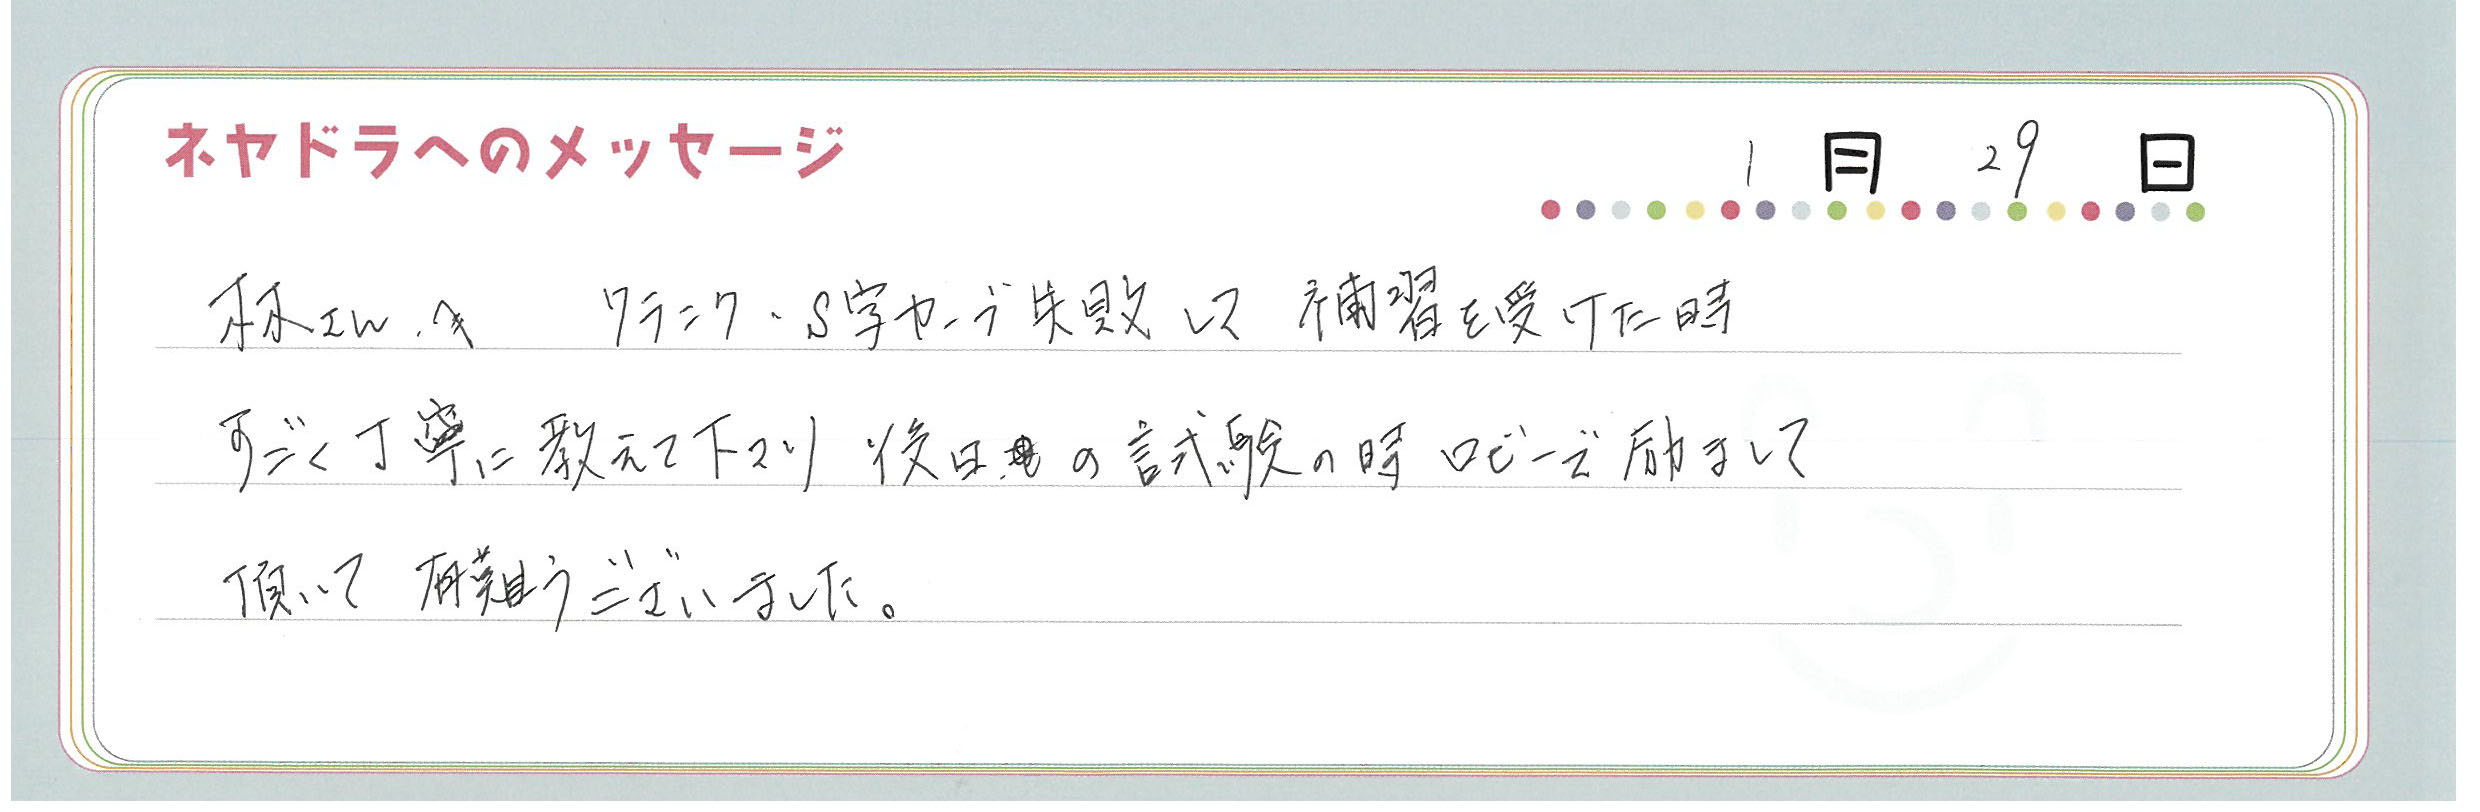 ネヤドラへのメッセージ
1月29日
林さんへ クランク・S字カーブ失敗して 補習を受けた時
すごく丁寧に教えて下さり 後日の試験の時 ロビーで励まして
頂いて 有難うございました。